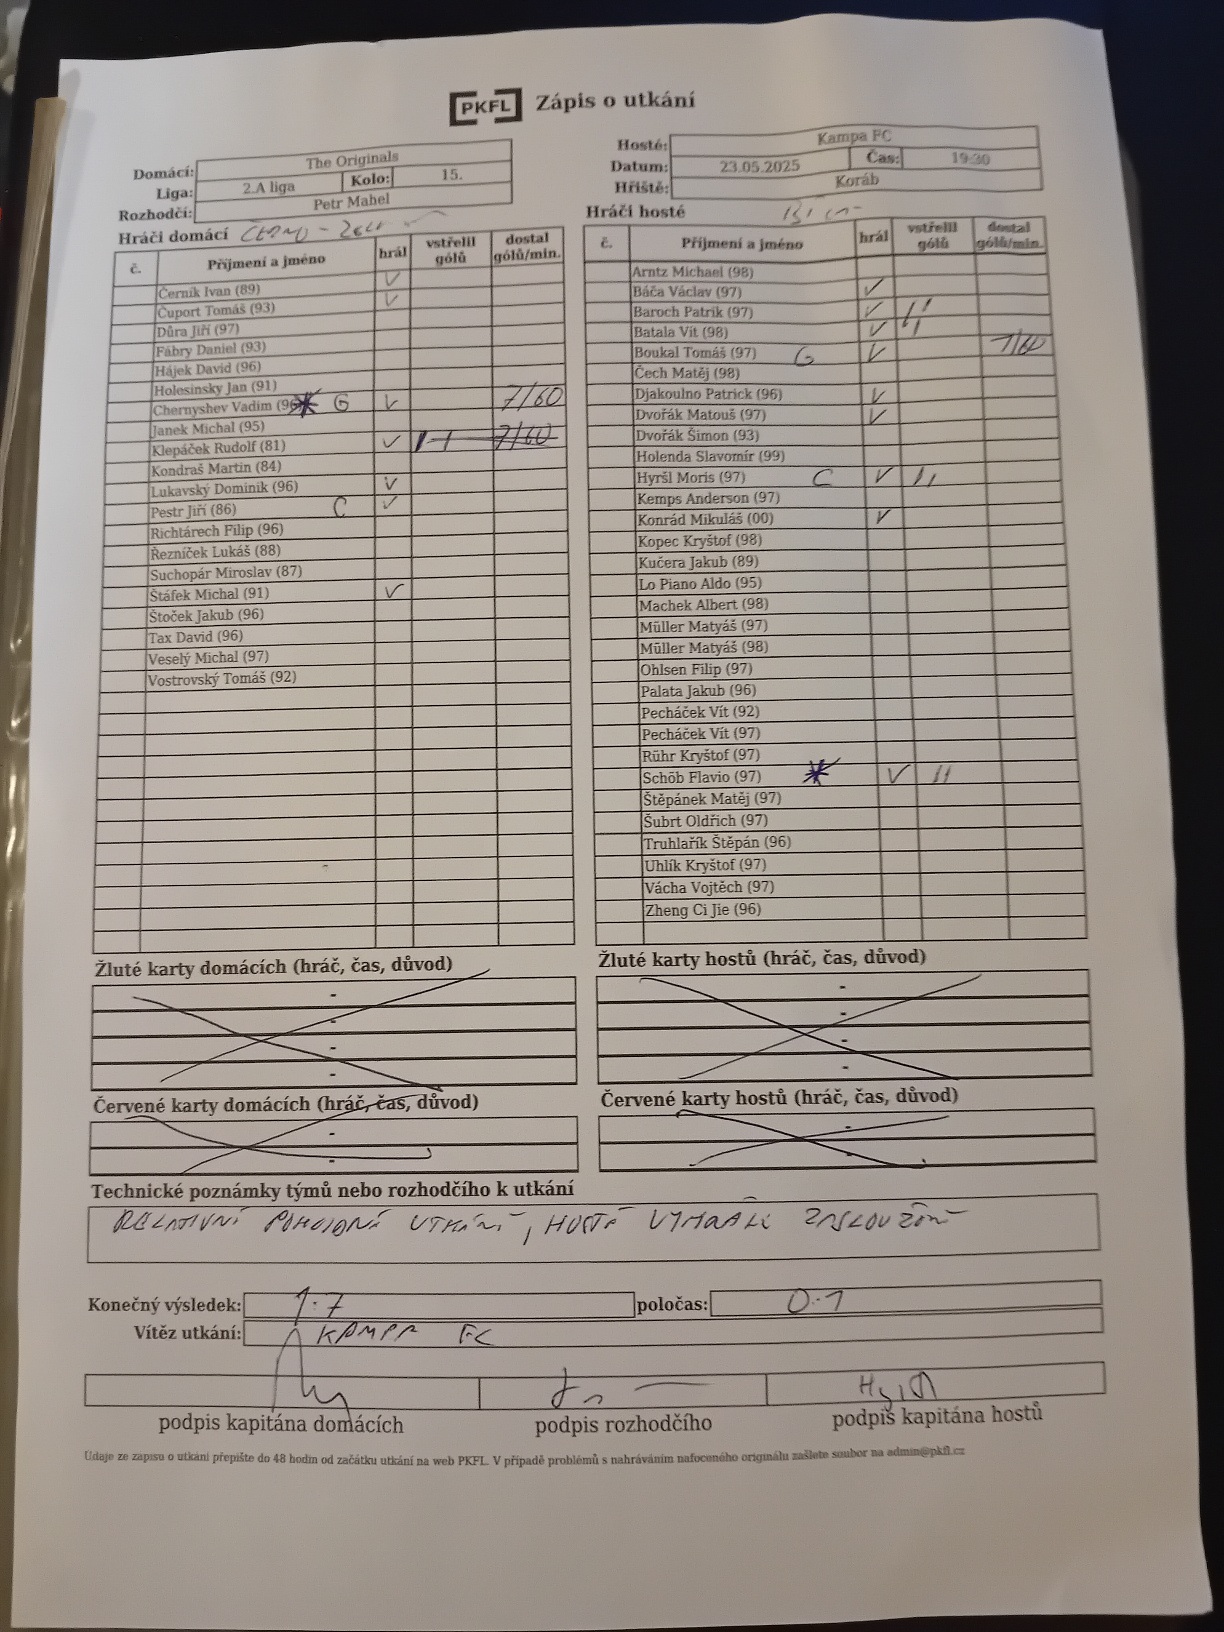 PKFL Zápis o utkání
Domácí: The Originals
Liga: 2.A liga Kolo: 15.
Rozhodčí: Petr Mabel
Hosté: Kampa FC
Datum: 23.05.2025 Čas: 19:30
Hřiště: Koráb
Hráči domácí
č. Příjmení a jméno hrál vstřelil gólů dostal gólů/min.
Černík Ivan (89) V
Čuport Tomáš (93) V
Důra Jiří (97)
Fábry Daniel (93)
Hájek David (96)
Holesinsky Jan (91)
Chernyshev Vadim (96 G V 7/60
Janek Michal (95)
Klepáček Rudolf (81) V 7/60
Kondraš Martin (84)
Lukavský Dominik (96) V
Pestr Jiří (86) C V
Richtárech Filip (96)
Řezníček Lukáš (88)
Suchopár Miroslav (87)
Štáfek Michal (91) V
Štoček Jakub (96)
Tax David (96)
Veselý Michal (97)
Vostrovský Tomáš (92)
Hráči hosté
č. Příjmení a jméno hrál vstřelil gólů dostal gólů/min.
Arntz Michael (98)
Báča Václav (97) V
Baroch Patrik (97) V II
Batala Vít (98) V I
Boukal Tomáš (97) G V 1/60
Čech Matěj (98)
Djakoulno Patrick (96) V
Dvořák Matouš (97) V
Dvořák Šimon (93)
Holenda Slavomír (99)
Hyršl Moris (97) C V II
Kemps Anderson (97)
Konrád Mikuláš (00) V
Kopec Kryštof (98)
Kučera Jakub (89)
Lo Piano Aldo (95)
Machek Albert (98)
Müller Matyáš (97)
Müller Matyáš (98)
Ohlsen Filip (97)
Palata Jakub (96)
Pecháček Vít (92)
Pecháček Vít (97)
Rühr Kryštof (97)
Schöb Flavio (97) V II
Štěpánek Matěj (97)
Šubrt Oldřich (97)
Truhlařík Štěpán (96)
Uhlík Kryštof (97)
Vácha Vojtěch (97)
Zheng Ci Jie (96)
Žluté karty domácích (hráč, čas, důvod)
Žluté karty hostů (hráč, čas, důvod)
Červené karty domácích (hráč, čas, důvod)
Červené karty hostů (hráč, čas, důvod)
Technické poznámky týmů nebo rozhodčího k utkání
RELATIVNÍ POHODNÁ UTKÁNÍ, HOSTÉ VYHRÁLI ZASLOUŽENĚ
Konečný výsledek: 1:7 poločas: 0:1
Vítěz utkání: KAMPA FC
podpis kapitána domácích podpis rozhodčího podpis kapitána hostů
Údaje ze zápisu o utkání přepište do 48 hodin od začátku utkání na web PKFL. V případě problémů s nahráváním nafoceného originálu zašlete soubor na admin@pkfl.cz